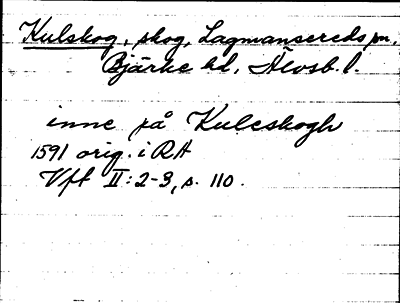 Kulskog, skog, Lagmansereds sn.
Bjärke hd, Älvsb. l.
inne på Kuleskogh
1591 orig. i RA
Vft II:2-3, s. 110.